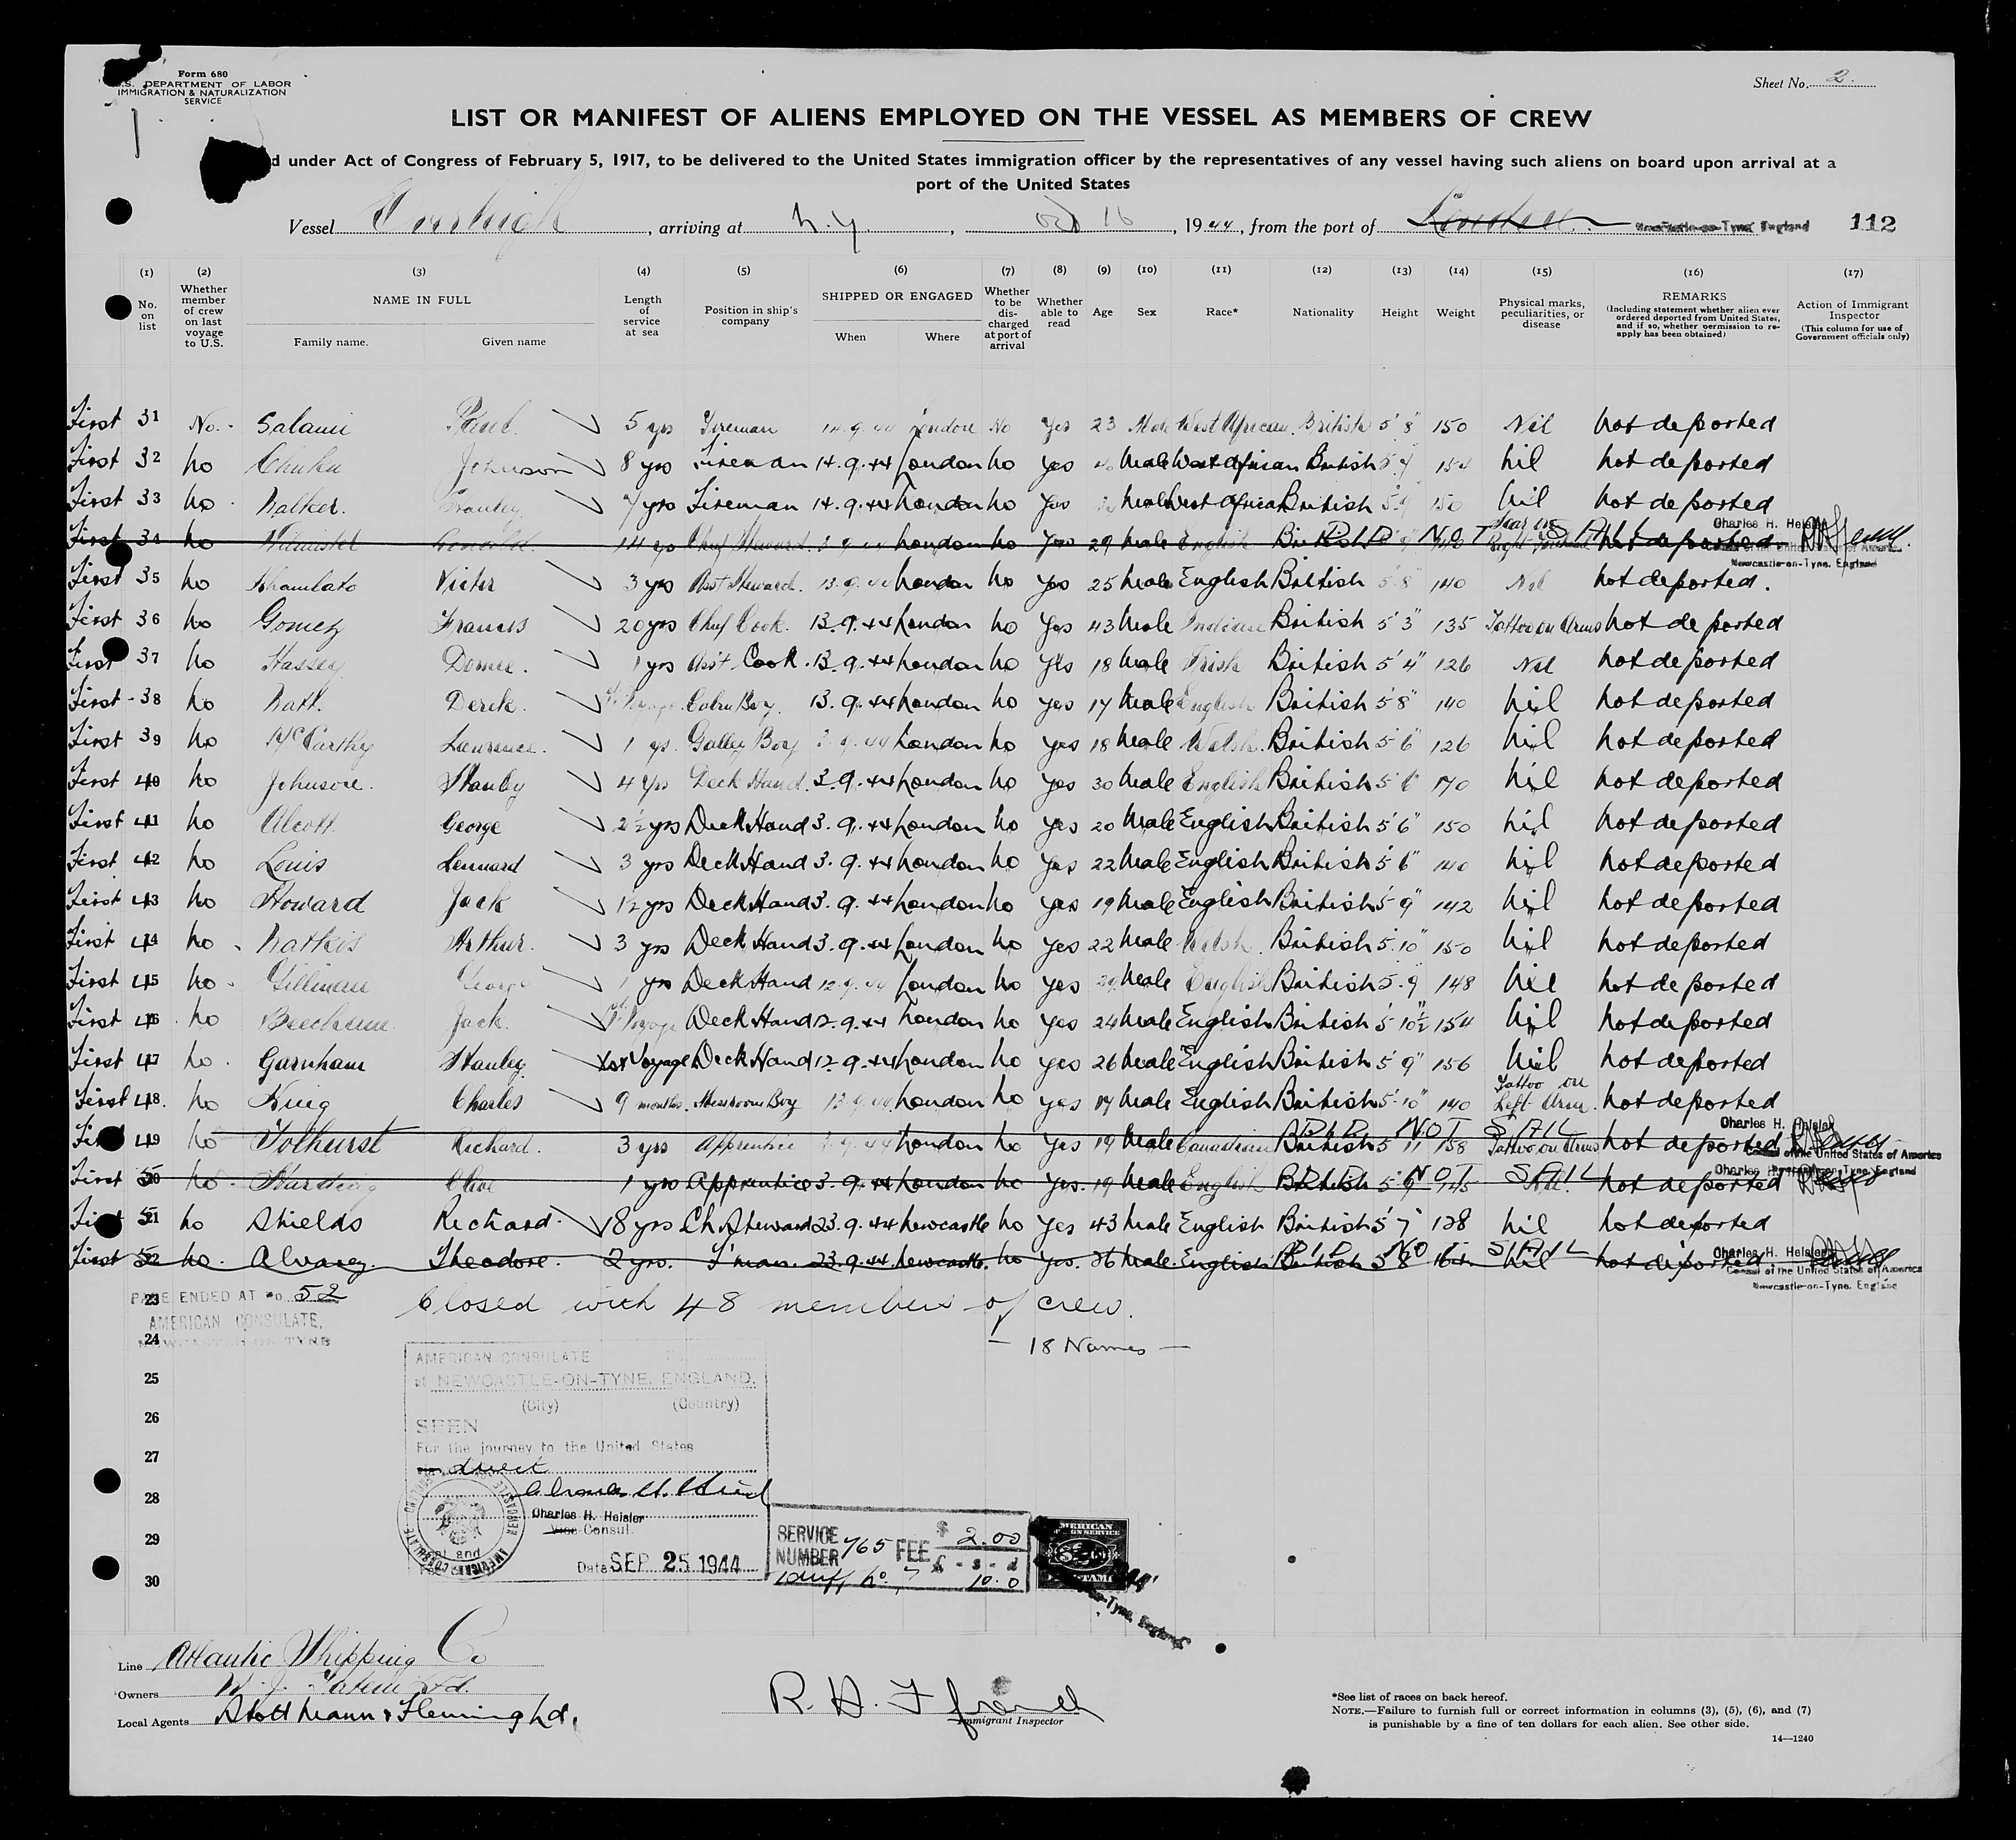 Form 680
U.S. DEPARTMENT OF LABOR
IMMIGRATION & NATURALIZATION
SERVICE
Sheet No. 2.
LIST OR MANIFEST OF ALIENS EMPLOYED ON THE VESSEL AS MEMBERS OF CREW
under Act of Congress of February 5, 1917, to be delivered to the United States immigration officer by the representatives of any vessel having such aliens on board upon arrival at a
port of the United States
Vessel , arriving at N.Y. , Oct 16 , 1944, from the port of London Newcastle-on-Tyne, England 112
(1) (2) (3) (4) (5) (6) (7) (8) (9) (10) (11) (12) (13) (14) (15) (16) (17)
No. on list
Whether member of crew on last voyage to U.S.
NAME IN FULL
Family name. Given name
Length of service at sea
Position in ship's company
SHIPPED OR ENGAGED
When Where
Whether to be discharged at port of arrival
Whether able to read
Age
Sex
Race*
Nationality
Height
Weight
Physical marks, peculiarities, or disease
REMARKS
(Including statement whether alien ever ordered deported from United States, and if so, whether permission to re-apply has been obtained)
Action of Immigrant Inspector
(This column for use of Government officials only)
First 31 No. Salami Paul. 5 yrs Fireman 14.9.44 London No Yes 23 Male West African British 5' 8" 150 Nil Not deported
First 32 No Chuku Johnson 8 yrs Fireman 14.9.44 London No Yes Male West African British 154 Nil Not deported
First 33 No Walker. Stanley 7 yrs Fireman 14.9.44 London No Yes Male West African British 150 Nil Not deported
First 34 No 14 yrs Chief Steward 3.9.44 London No Yes 29 Male English British DID NOT SAIL Scar on Right Forehead Not deported Charles H. Heisler
Newcastle-on-Tyne, England
First 35 No Khamlato Victor 3 yrs Asst Steward. 13.9.44 London No Yes 25 Male English British 5' 8" 140 Nil Not deported.
First 36 No Gomez Francis 20 yrs Chief Cook. 13.9.44 London No Yes 43 Male Indian British 5' 3" 135 Tattoo on Arms Not deported
First 37 No Hassey 1 yrs Ass't Cook. 13.9.44 London No Yes 18 Male Irish British 5' 4" 126 Nil Not deported
First 38 No Derek. 1st Voyage. Cabin Boy. 13.9.44 London No Yes 17 Male English British 5' 8" 140 Nil Not deported
First 39 No McCarthy Lawrence. 1 yr. Galley Boy 3.9.44 London No Yes 18 Male Welsh. British 5' 6" 126 Nil Not deported
First 40 No Johnson. Stanley 4 Yrs Deck Hand. 3.9.44 London No Yes 30 Male English British 5' 6" 170 Nil Not deported
First 41 No Alcott. George 2½ yrs Deck Hand 3.9.44 London No Yes 20 Male English British 5' 6" 150 Nil Not deported
First 42 No Louis Lennard 3 yrs Deck Hand 3.9.44 London No Yes 22 Male English British 5' 6" 140 Nil Not deported
First 43 No Howard Jack 1½ yrs Deck Hand 3.9.44 London No Yes 19 Male English British 5' 9" 142 Nil Not deported
First 44 No Watkis Arthur. 3 yrs Deck Hand 3.9.44 London No Yes 22 Male Welsh. British 5' 10" 150 Nil Not deported
First 45 No George 1 yrs Deck Hand 12.9.44 London No Yes 29 Male English British 5.9 148 Nil Not deported
First 46 No Jack. 1st Voyage Deck Hand 12.9.44 London No Yes 24 Male English British 5' 10½" 154 Nil Not deported
First 47 No Garnham Stanley 1st Voyage Deck Hand 12.9.44 London No Yes 26 Male English British 5' 9" 156 Nil Not deported
First 48. No King Charles 9 months. Messroom Boy 13.9.44 London No Yes 17 Male English British 5' 10" 140 Tattoo on Left Arm. Not deported
First 49 No Tolhurst Richard. 3 yrs Apprentice 3.9.44 London No Yes 19 Male Canadian British 5' 11 158 DID NOT SAIL Tattoo on Arms Not deported Charles H. Heisler
Consul of the United States of America
First 50 No. Harding Clive 1 yrs Apprentice 3.9.44 London No Yes. 19 Male English British 5' 9" 145 DID NOT SAIL Nil. Not deported Charles H. Heisler
Newcastle-on-Tyne, England
First 51 No Shields Richard. 18 yrs Ch. Steward 23.9.44 Newcastle No Yes 43 Male English British 5' 7" 128 Nil Not deported
First 52 No. Alvarez. Theodore. 2 yrs. F'man. 23.9.44. Newcastle. No Yes. 26 Male. English British 5' 8 164 DID NOT SAIL Nil Not deported Charles H. Heisler
Consul of the United States of America
Newcastle-on-Tyne, England
23 PAGE ENDED AT No. 52
AMERICAN CONSULATE,
NEWCASTLE-ON-TYNE
Closed with 48 members of crew.
— 18 Names —
24
25
26
27
28
29
30
AMERICAN CONSULATE
at NEWCASTLE-ON-TYNE, ENGLAND.
(City) (Country)
SEEN
For the journey to the United States
direct
Charles H. Heisler
Vice Consul.
Date SEP 25 1944
SERVICE NUMBER 765 FEE $ 2.00
£ - s - d
Tariff No. 7 10. 0
AMERICAN
FOREIGN SERVICE
$2
FEE STAMP
-on-Tyne, England
Line Atlantic Shipping Co
Owners W. J. Tatem Ltd.
Local Agents Stott Mann & Fleming Ltd.
Immigrant Inspector
*See list of races on back hereof.
NOTE.—Failure to furnish full or correct information in columns (3), (5), (6), and (7)
is punishable by a fine of ten dollars for each alien. See other side.
14—1240